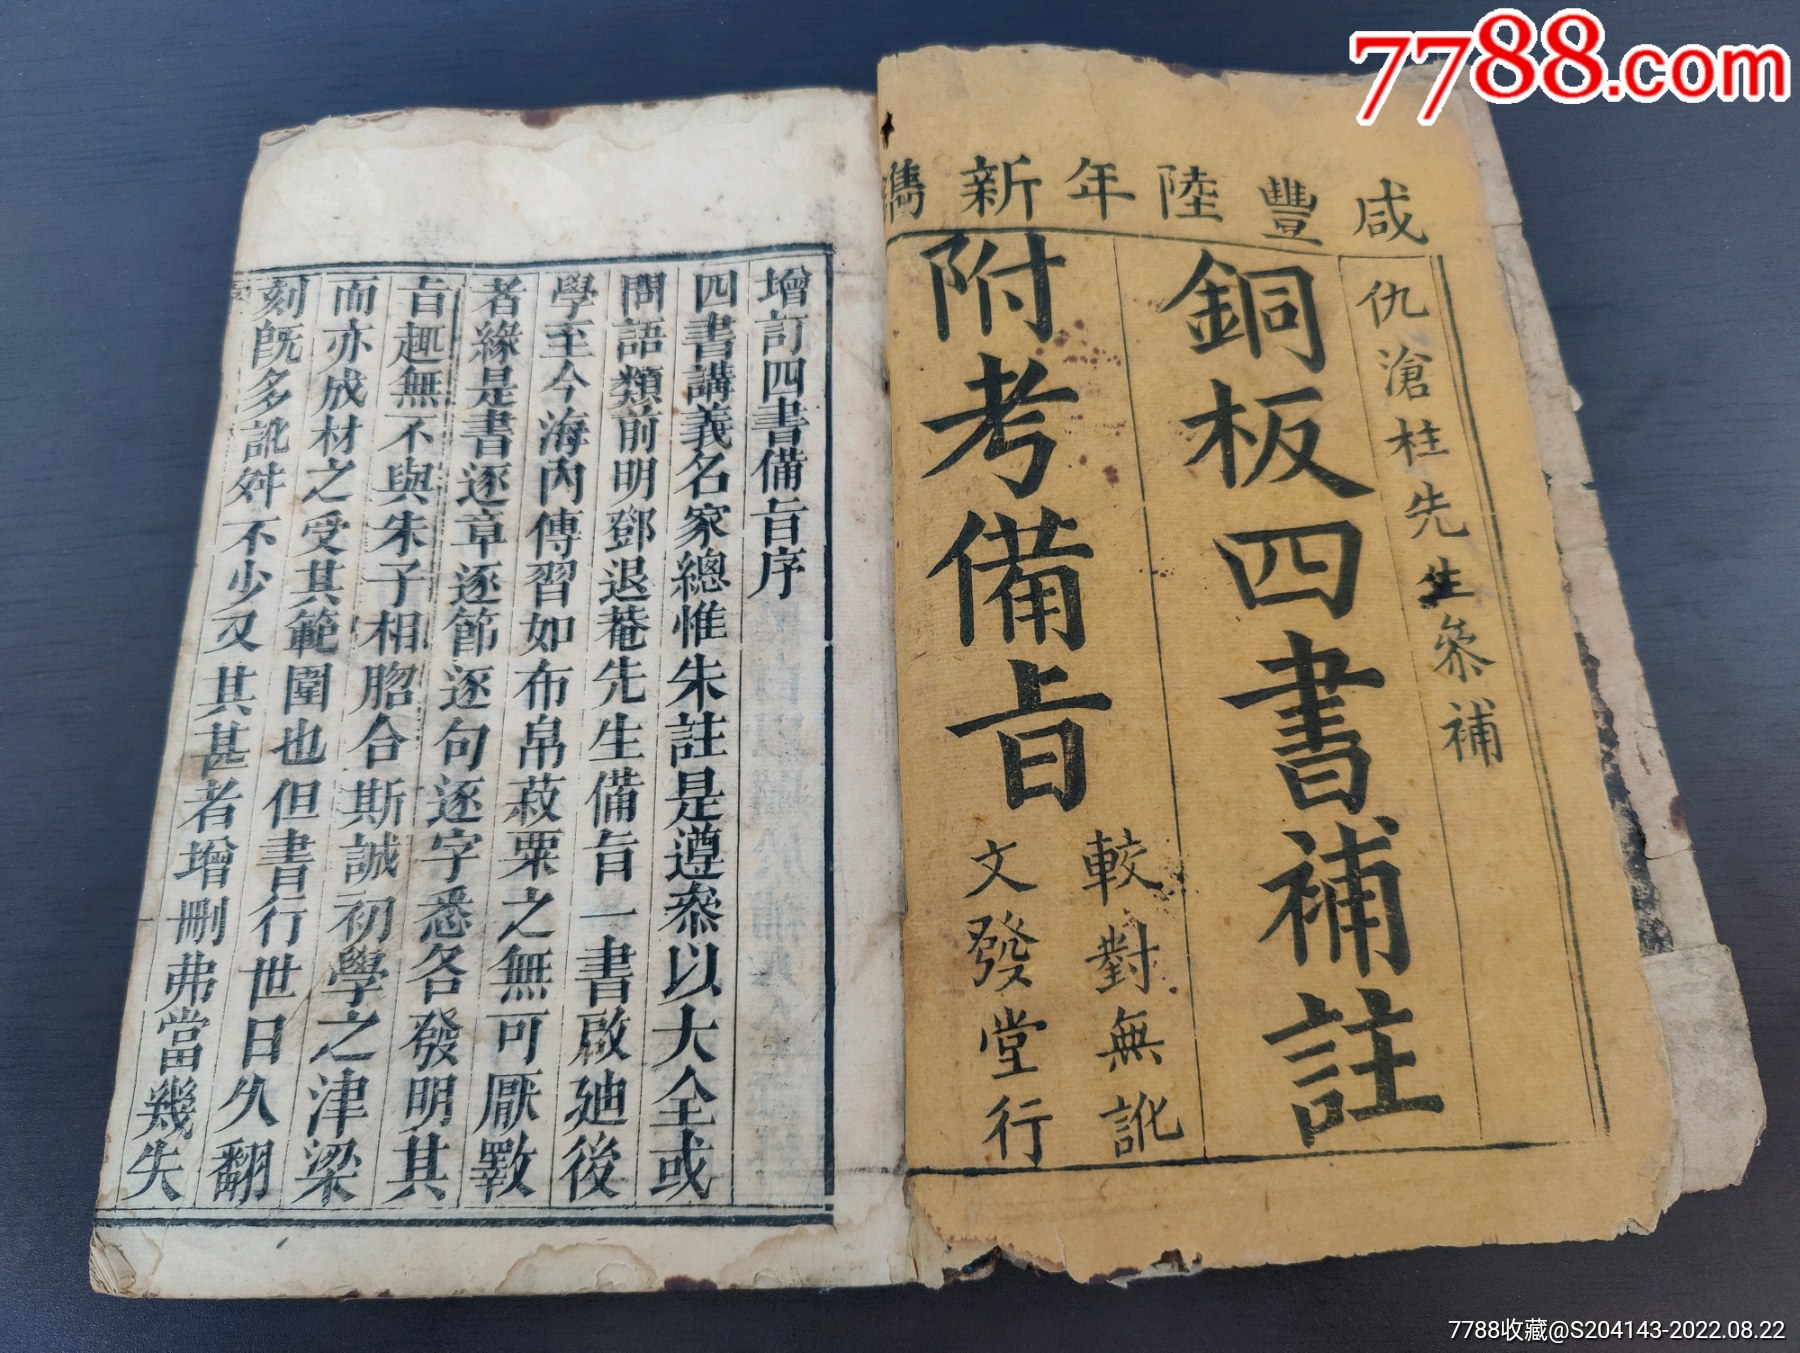 7788.com
咸豐陸年新鐫
仇滄柱先生叅補
銅板四書補註
附考備旨
較對無訛
文發堂行
增訂四書備旨序
四書講義名家總惟朱註是遵叅以大全或
問語類前明鄧退菴先生備旨一書啟廸後
學至今海內傳習如布帛菽粟之無可厭斁
者緣是書逐章逐節逐句逐字悉各發明其
旨趣無不與朱子相脗合斯誠初學之津梁
而亦成材之受其範圍也但書行世日久翻
刻旣多訛舛不少又其甚者增刪弗當幾失
7788收藏@S204143-2022.08.22